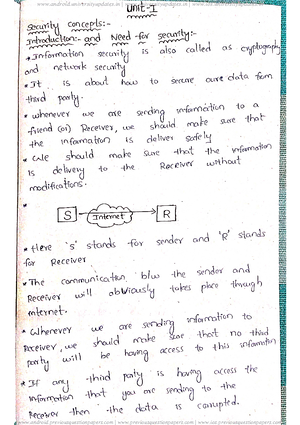 Unit-I
Security concepts:-
Introduction:- and Need for security:-
* Information security is also called as cryptography
and network security
* It is about how to secure oure data from
third party.
* whenever we are sending information to a
friend (or) Receiver, we should make sure that
the information is deliver safely
* we should make sure that the information
is delivery to the Receiver without
modifications.
*
S Internet R
* Here 's' stands for sender and 'R' stands
for Receiver
* The communication b/w the sender and
Receiver will abviously takes place through
internet.
* Whenever we are sending information to
Receiver, we should make sure that no third
party will be having access to this information
* If any third party is having access the
information that you are sending to the
Receiver then the data is corrupted.